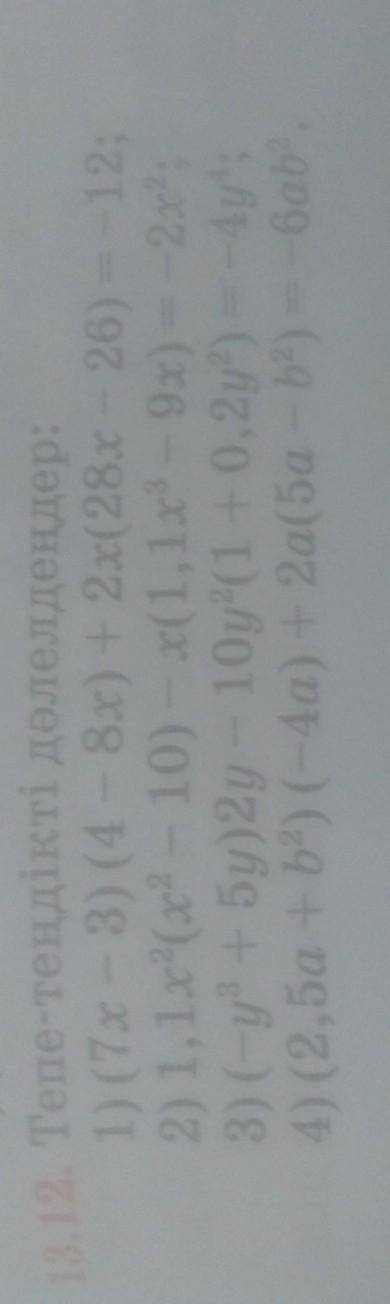 13.12. Тепе-теңдікті дәлелдеңдер:
1) (7x − 3) (4 − 8x) + 2x(28x − 26) = −12;
2) 1,1x²(x² − 10) − x(1,1x³ − 9x) = −2x²;
3) (−y³ + 5y)2y − 10y²(1 + 0,2y²) = −4y⁴;
4) (2,5a + b²) (−4a) + 2a(5a − b²) = −6ab².